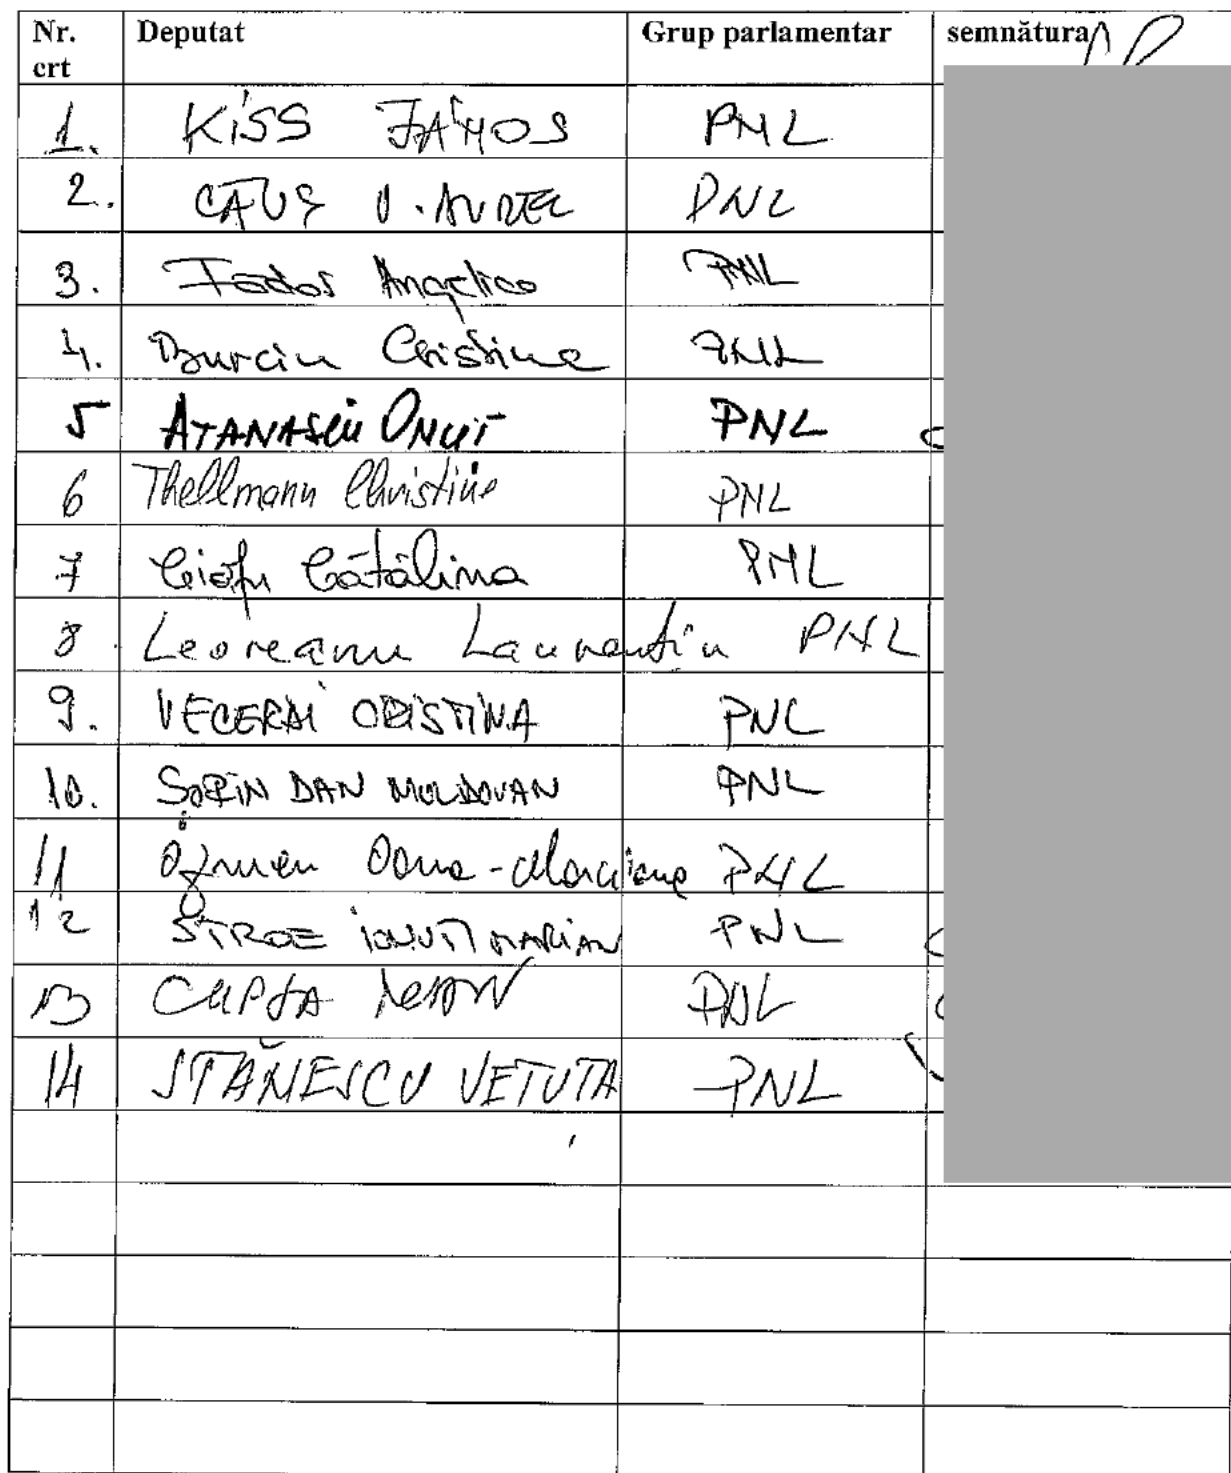 Nr. crt Deputat Grup parlamentar semnătura
1. KISS JÁNOS PNL
2. CĂUȘ V. AUREL PNL
3. Fădor Angelica PNL
4. Burciu Cristina PNL
5 ATANASIU ONUȚ PNL
6 Thellmann Christine PNL
7 Ciofu Cătălina PNL
8. Leoreanu Laurențiu PNL
9. VECERDI CRISTINA PNL
10. SORIN DAN MOLDOVAN PNL
11 Özmen Oana-Marciana PNL
12 STROE IONUȚ MARIAN PNL
13 CUPȘA IOAN PNL
14 STĂNESCU VETUȚA PNL